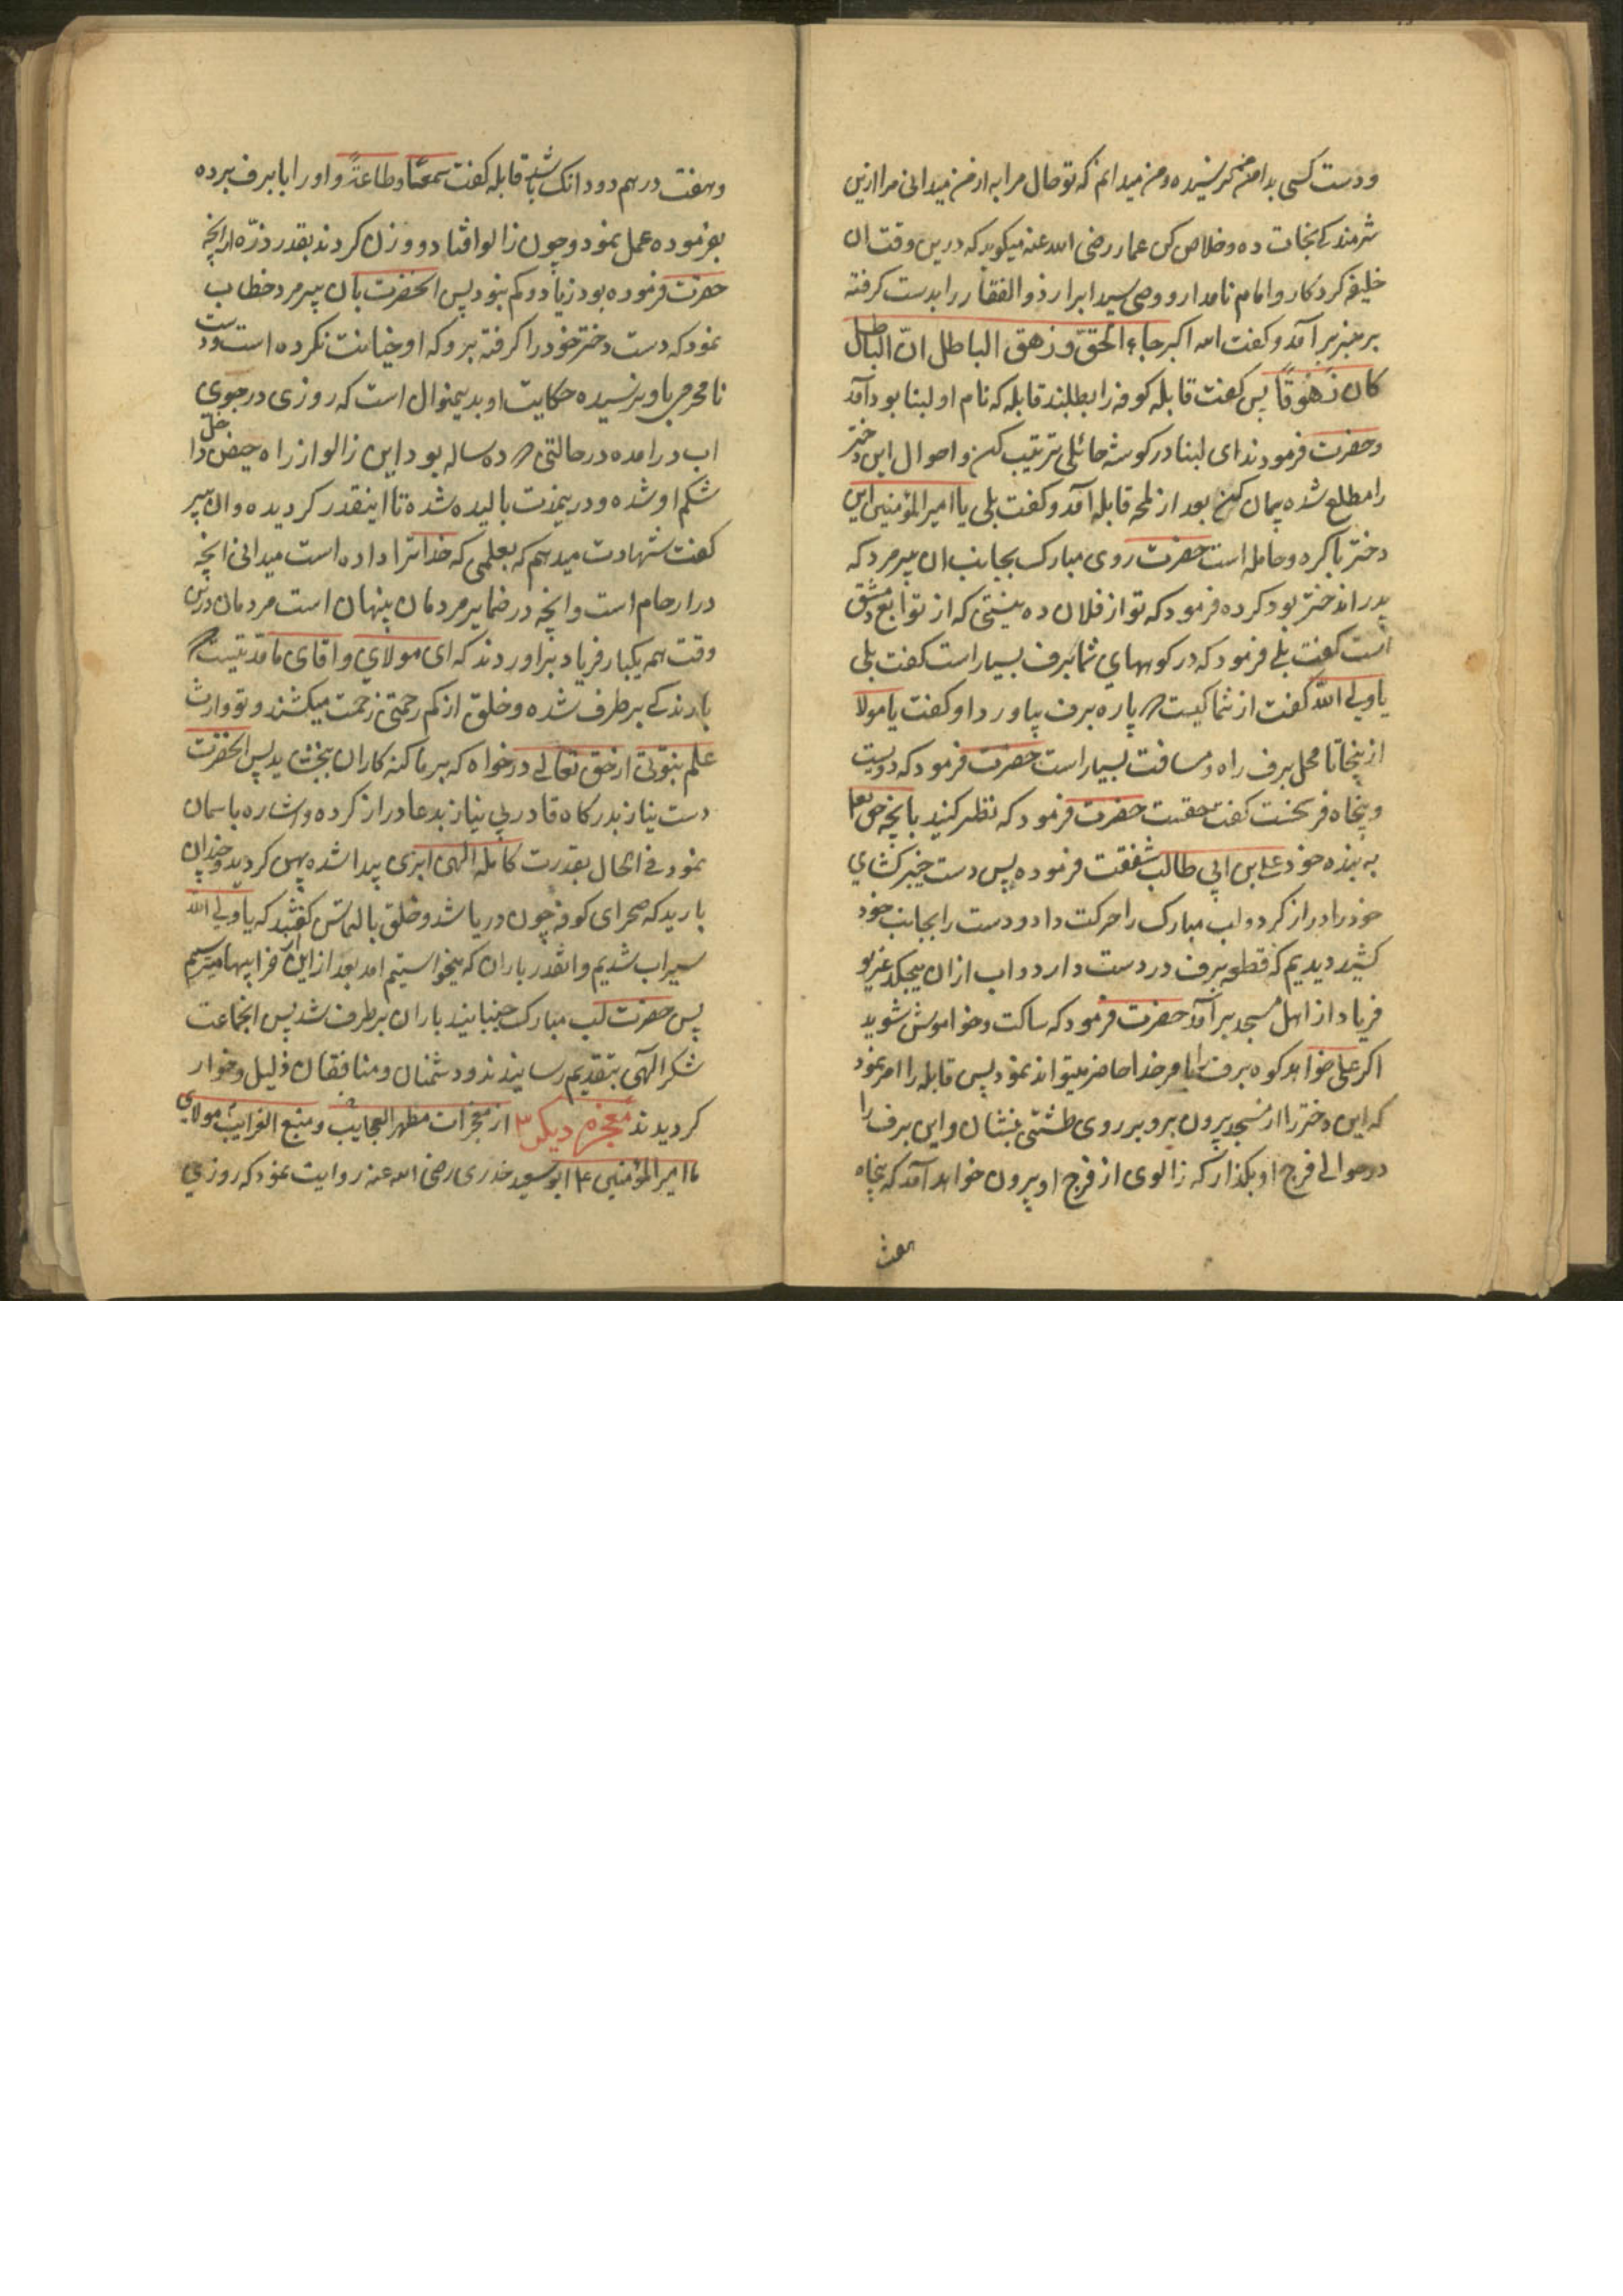 ودست کسی بدامنم نرسیده ومن میدانم که تو حال مرا به از من میدانی مرا ازین
شرمندکی نجات ده وخلاص کن عمار رضی الله عنه میکوید که درین وقت ان
خلیفه کردکار وامام نامدار ووصی سید ابرار ذوالفقار را بدست کرفته
بر منبر بر آمد وکفت الله اکبر جاء الحق وزهق الباطل انّ الباطل
کان زهوقاً پس کفت قابله کوفه را بطلبند قابله که نام او لبنا بود آمد
وحضرت فرمودند ای لبنا در کوشه حائلی ترتیب کن واحوال این دختر
را مطلع شده بیان کن بعد از لمحه قابله آمد وکفت بلی یا امیرالمؤمنین این
دختر باکره وحامله است حضرت روی مبارک بجانب ان پیرمرد که
پدر اندختر بود کرده فرمود که تو از فلان ده نیستی که از توابع دمشق
است کفت بلی فرمود که در کوههای شما برف بسیار است کفت بلی
یا ولی الله کفت از شما کیست که پاره برف بیاورد او کفت یا مولا
از ینجا تا محل برف راه ومسافت بسیار است حضرت فرمود که دویست
وپنجاه فرسخست کفت حقست حضرت فرمود که نظر کنید بانچه حق تعا
به بنده خود علی بن ابی طالب شفقت فرموده پس دست خیبر کشای
خود را دراز کرد ولب مبارک را حرکت داد ودست را بجانب خود
کشید دیدیم که قطعه برف در دست دارد واب از ان میچکد غریو
فریاد از اهل مسجد بر آمد حضرت فرمود که ساکت وخواموش شوید
اکر علی خواهد کوه برف با مر خدا حاضر میتواند نمود پس قابله را امر نمود
که این دختر را از مسجد بیرون برو بر روی طشتی بنشان واین برف را
در حوالی فرج او بکذار که زالوی از فرج او بیرون خواهد آمد که پنجاه
هفت
وهفت درهم دو دانک باشد قابله کفت سمعًا وطاعةً واو را با برف برده
بفرموده عمل نمود وچون زالو افتاد ووزن کردند بقدر ذرّه از انچه
حضرت فرموده بود زیاد وکم نبود پس انحضرت بان پیر مرد خطاب
نمود که دست دختر خود را کرفته برو که او خیانت نکرده است ودست
نامحرمی باو نرسیده حکایت او بدینمنوال است که روزی در جوی
اب در امده در حالتی که ده ساله بود این زالو از راه حیض داخل
شکم او شده ودرینمدت بالیده شده تا اینقدر کردیده وان پیر
کفت شهادت میدهم که بعلمی که خدا ترا داده است میدانی انچه
در ارحام است وانچه در ضمایر مردمان پنهان است مردمان درین
وقت هم یکبار فریاد بر اوردند که ای مولای واقای ما مدتیست که
بارندکی بر طرف شده وخلق از کم رحمتی زحمت میکشند وتو وارث
علم نبوتی از حق تعالی در خواه که بر ما کنه کاران ببخشاید پس انحضرت
دست نیاز بدرکاه قادر بی نیاز بدعا دراز کرده واشاره باسمان
نمود فی الحال بقدرت کامله الهی ابری پیدا شده پهن کردید وچندان
بارید که صحرای کوفه چون دریا شد وخلق بالتماس کفتند که یا ولی الله
سیراب شدیم وانقدر باران که میخواستیم امد بعد از این از خرابیها میترسیم
پس حضرت لب مبارک جنبانید باران بر طرف شد پس انجماعت
شکر الهی بتقدیم رسانیدند ودشمنان ومنافقان ذلیل وخوار
کردیدند معجزه دیکر ۳ از معجزات مظهر العجایب ومنبع الغرایب مولای
ما امیرالمؤمنین ع ابو سعید خدری رضی الله عنه روایت نمود که روزی